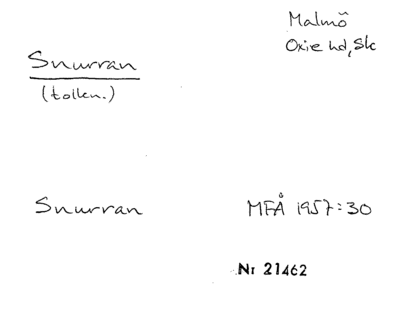 Malmö
Oxie hd, Sk
Snurran
(tolkn.)
Snurran MFÅ 1957:30
Nr 21462